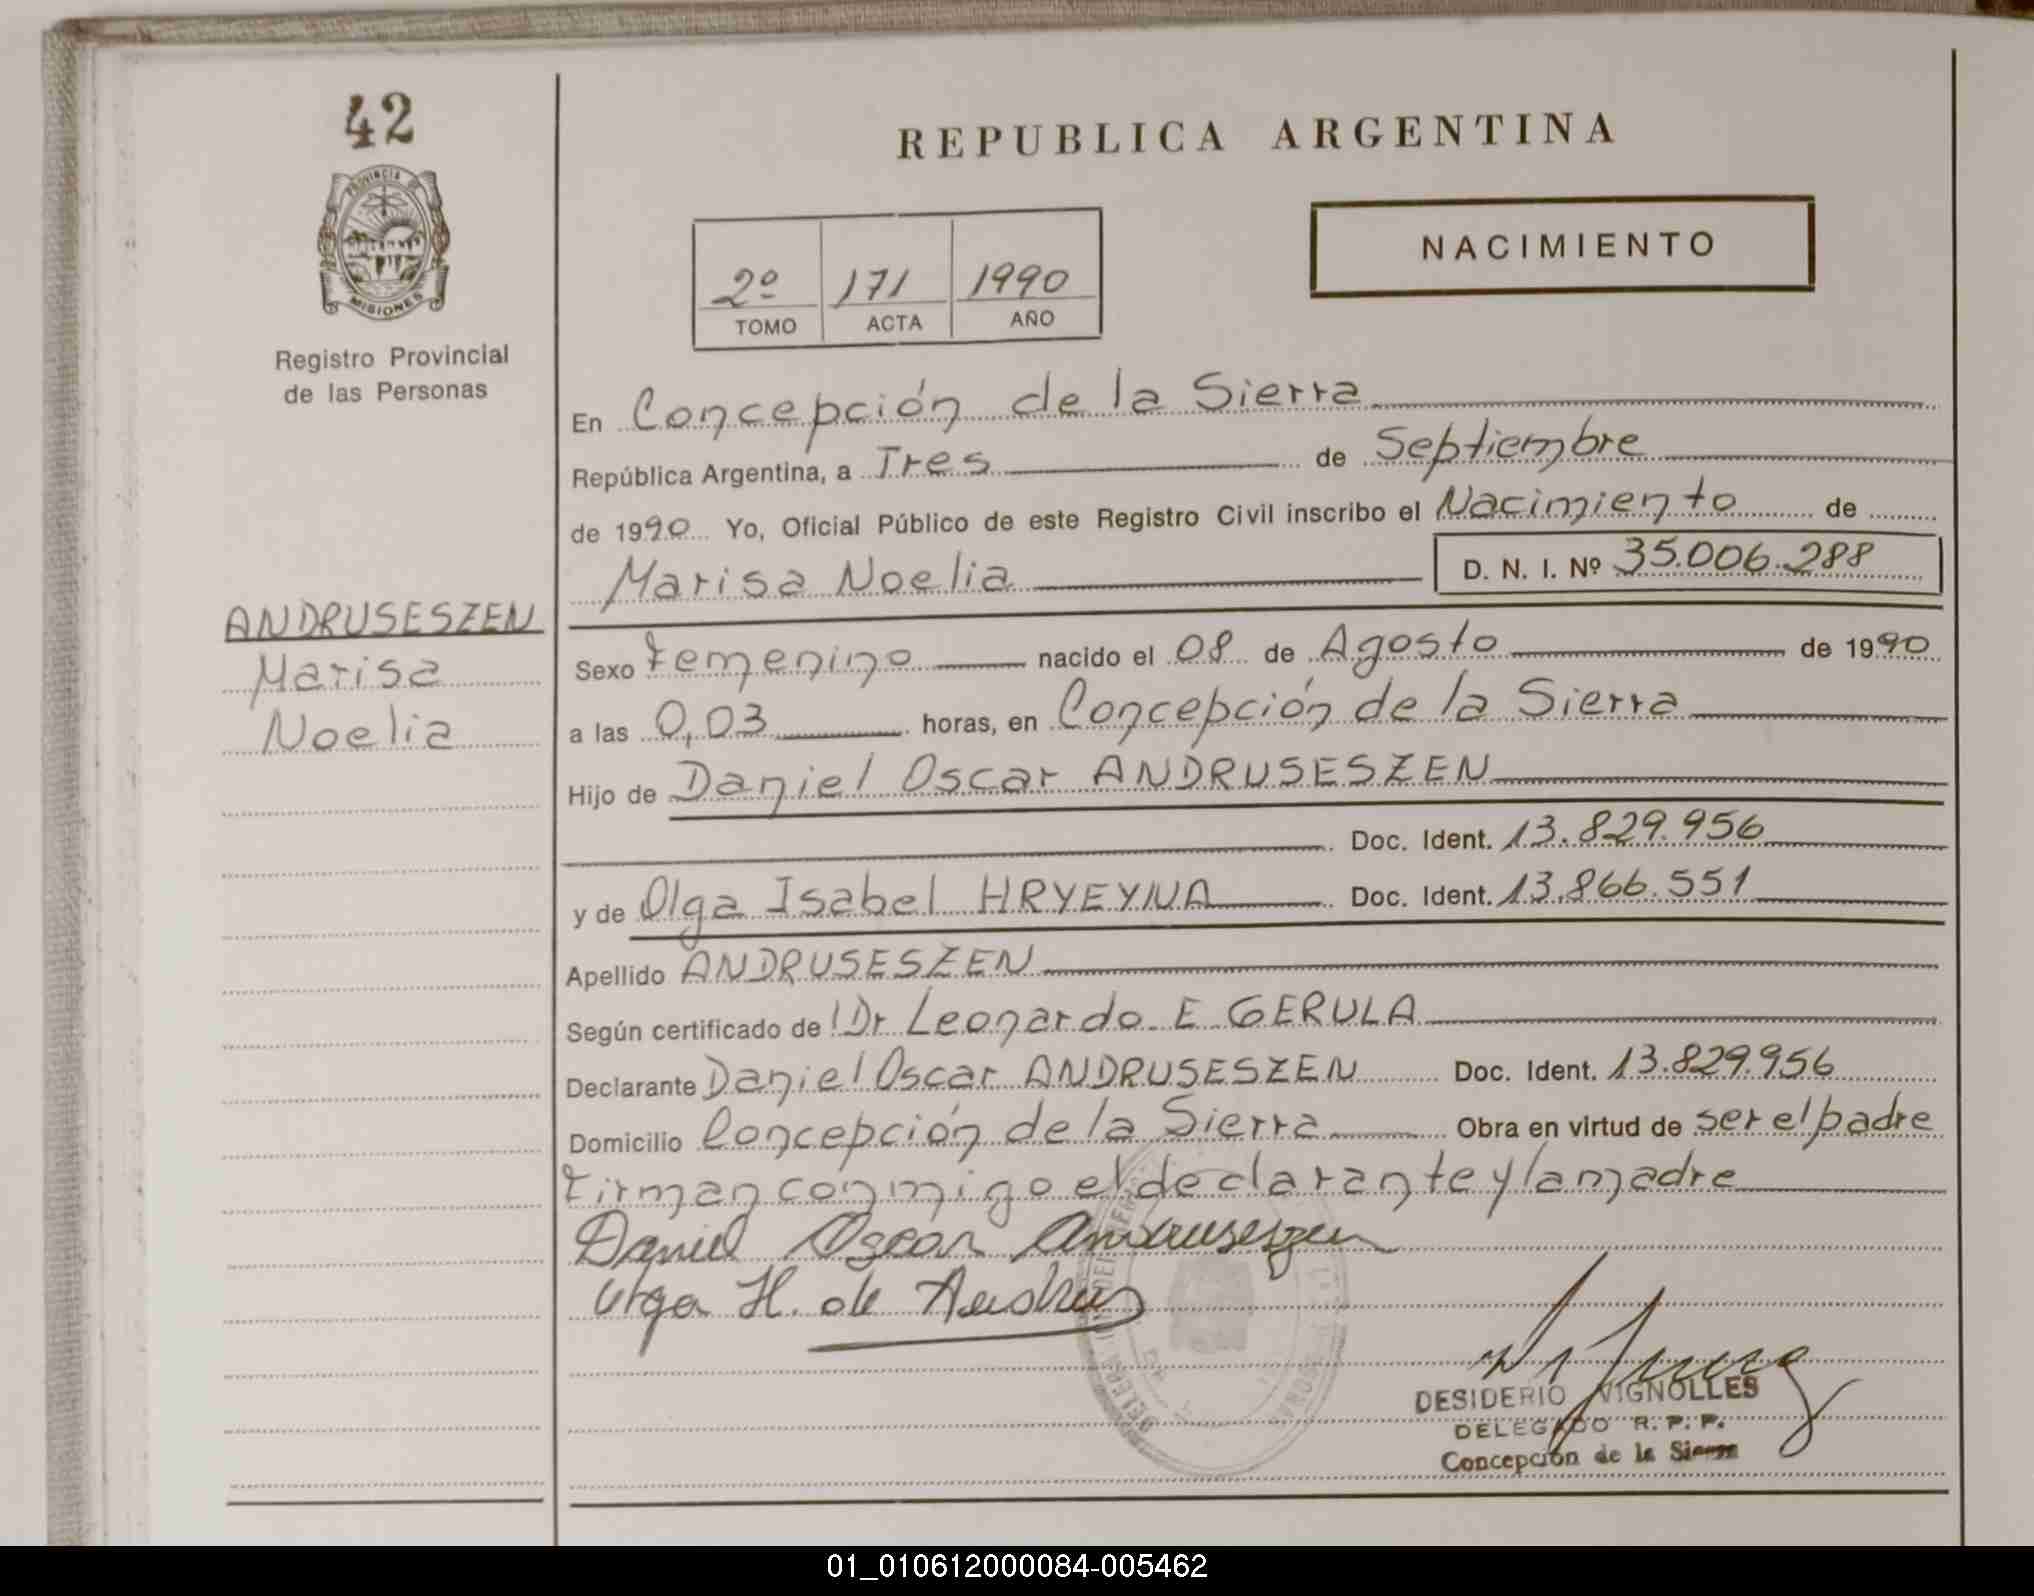 42
PROVINCIA DE
MISIONES
Registro Provincial
de las Personas
ANDRUSESZEN
Marisa
Noelia
REPUBLICA ARGENTINA
2º 171 1990
TOMO ACTA AÑO
NACIMIENTO
En Concepción de la Sierra
República Argentina, a Tres de Septiembre
de 1990 Yo, Oficial Público de este Registro Civil inscribo el Nacimiento de
Marisa Noelia D. N. I. Nº 35.006.288
Sexo Femenino nacido el 08 de Agosto de 1990
a las 0,03 horas, en Concepción de la Sierra
Hijo de Daniel Oscar ANDRUSESZEN
Doc. Ident. 13.829.956
y de Olga Isabel HRYEYNA Doc. Ident. 13.866.551
Apellido ANDRUSESZEN
Según certificado de Dr Leonardo E GERULA
Declarante Daniel Oscar ANDRUSESZEN Doc. Ident. 13.829.956
Domicilio Concepción de la Sierra Obra en virtud de ser el padre
Firman conmigo el declarante y la madre
Daniel Oscar Andruseszen
Olga H. de
DESIDERIO VIGNOLLES
DELEGADO R. P. P.
Concepción de la Sierra
01_010612000084-005462